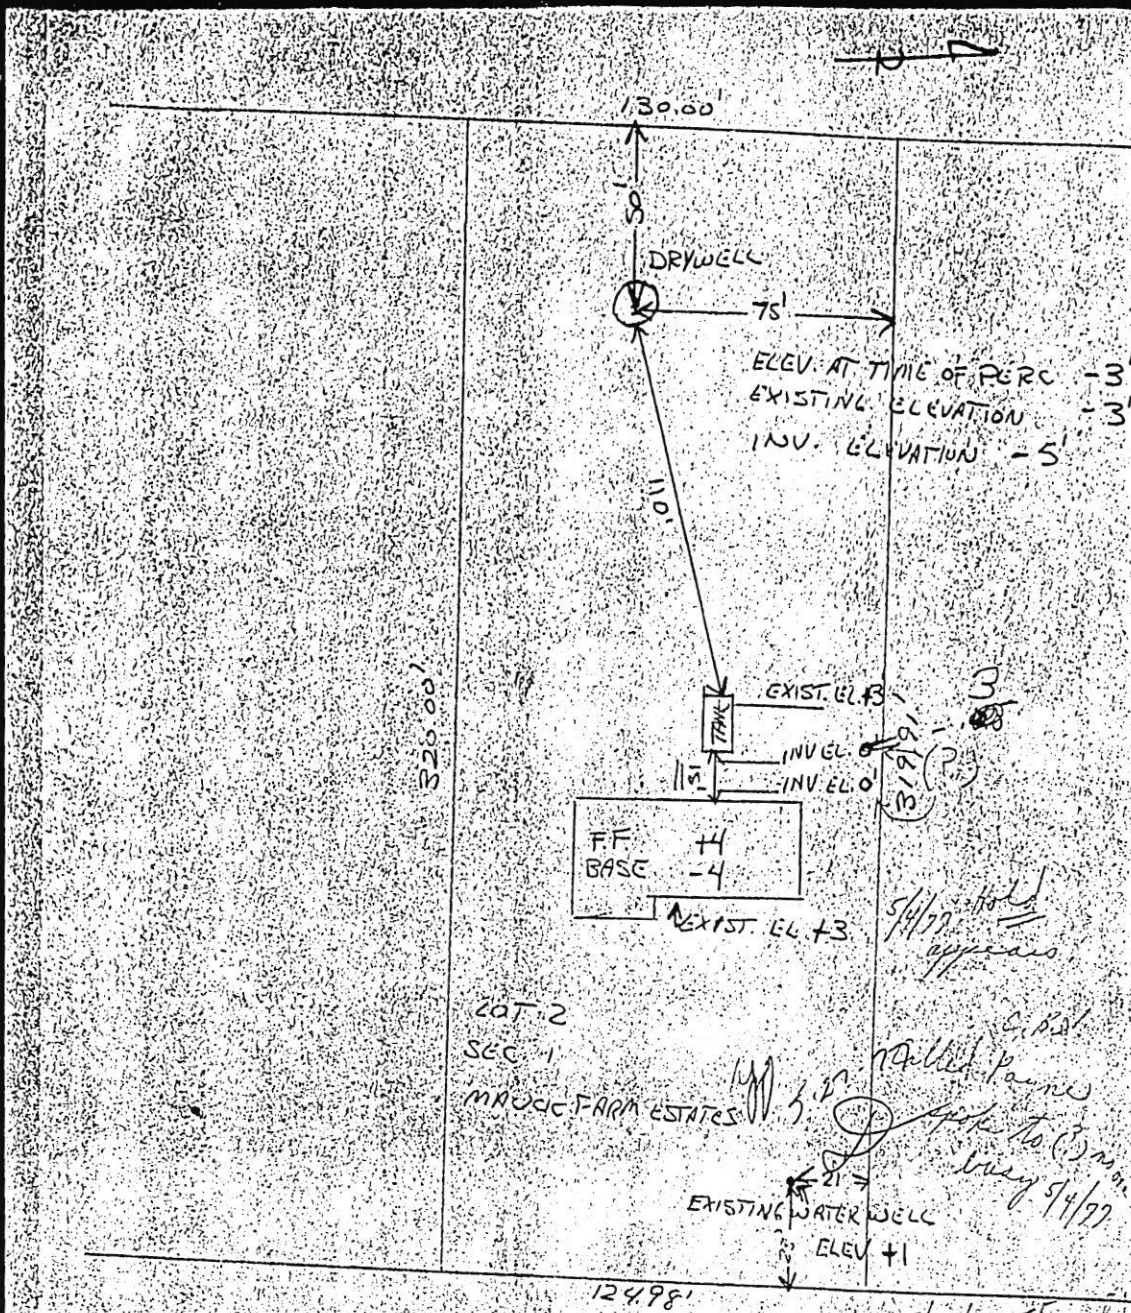 N
130.00'
50'
DRYWELL
75'
ELEV. AT TIME OF PERC -3'
EXISTING ELEVATION -3'
INV. ELEVATION -5'
110'
320.00'
TANK
EXIST. EL. +3
INV EL. 0'
INV EL 0'
15'
319.91'
(?)
F.F. +4
BASE -4
EXIST. EL. +3
5/4/77 Hold
appears
LOT 2
SEC 1
MAUCK FARM ESTATES
Called
spoke to (?)
busy 5/4/77
21'
EXISTING WATER WELL
ELEV +1
124.98'